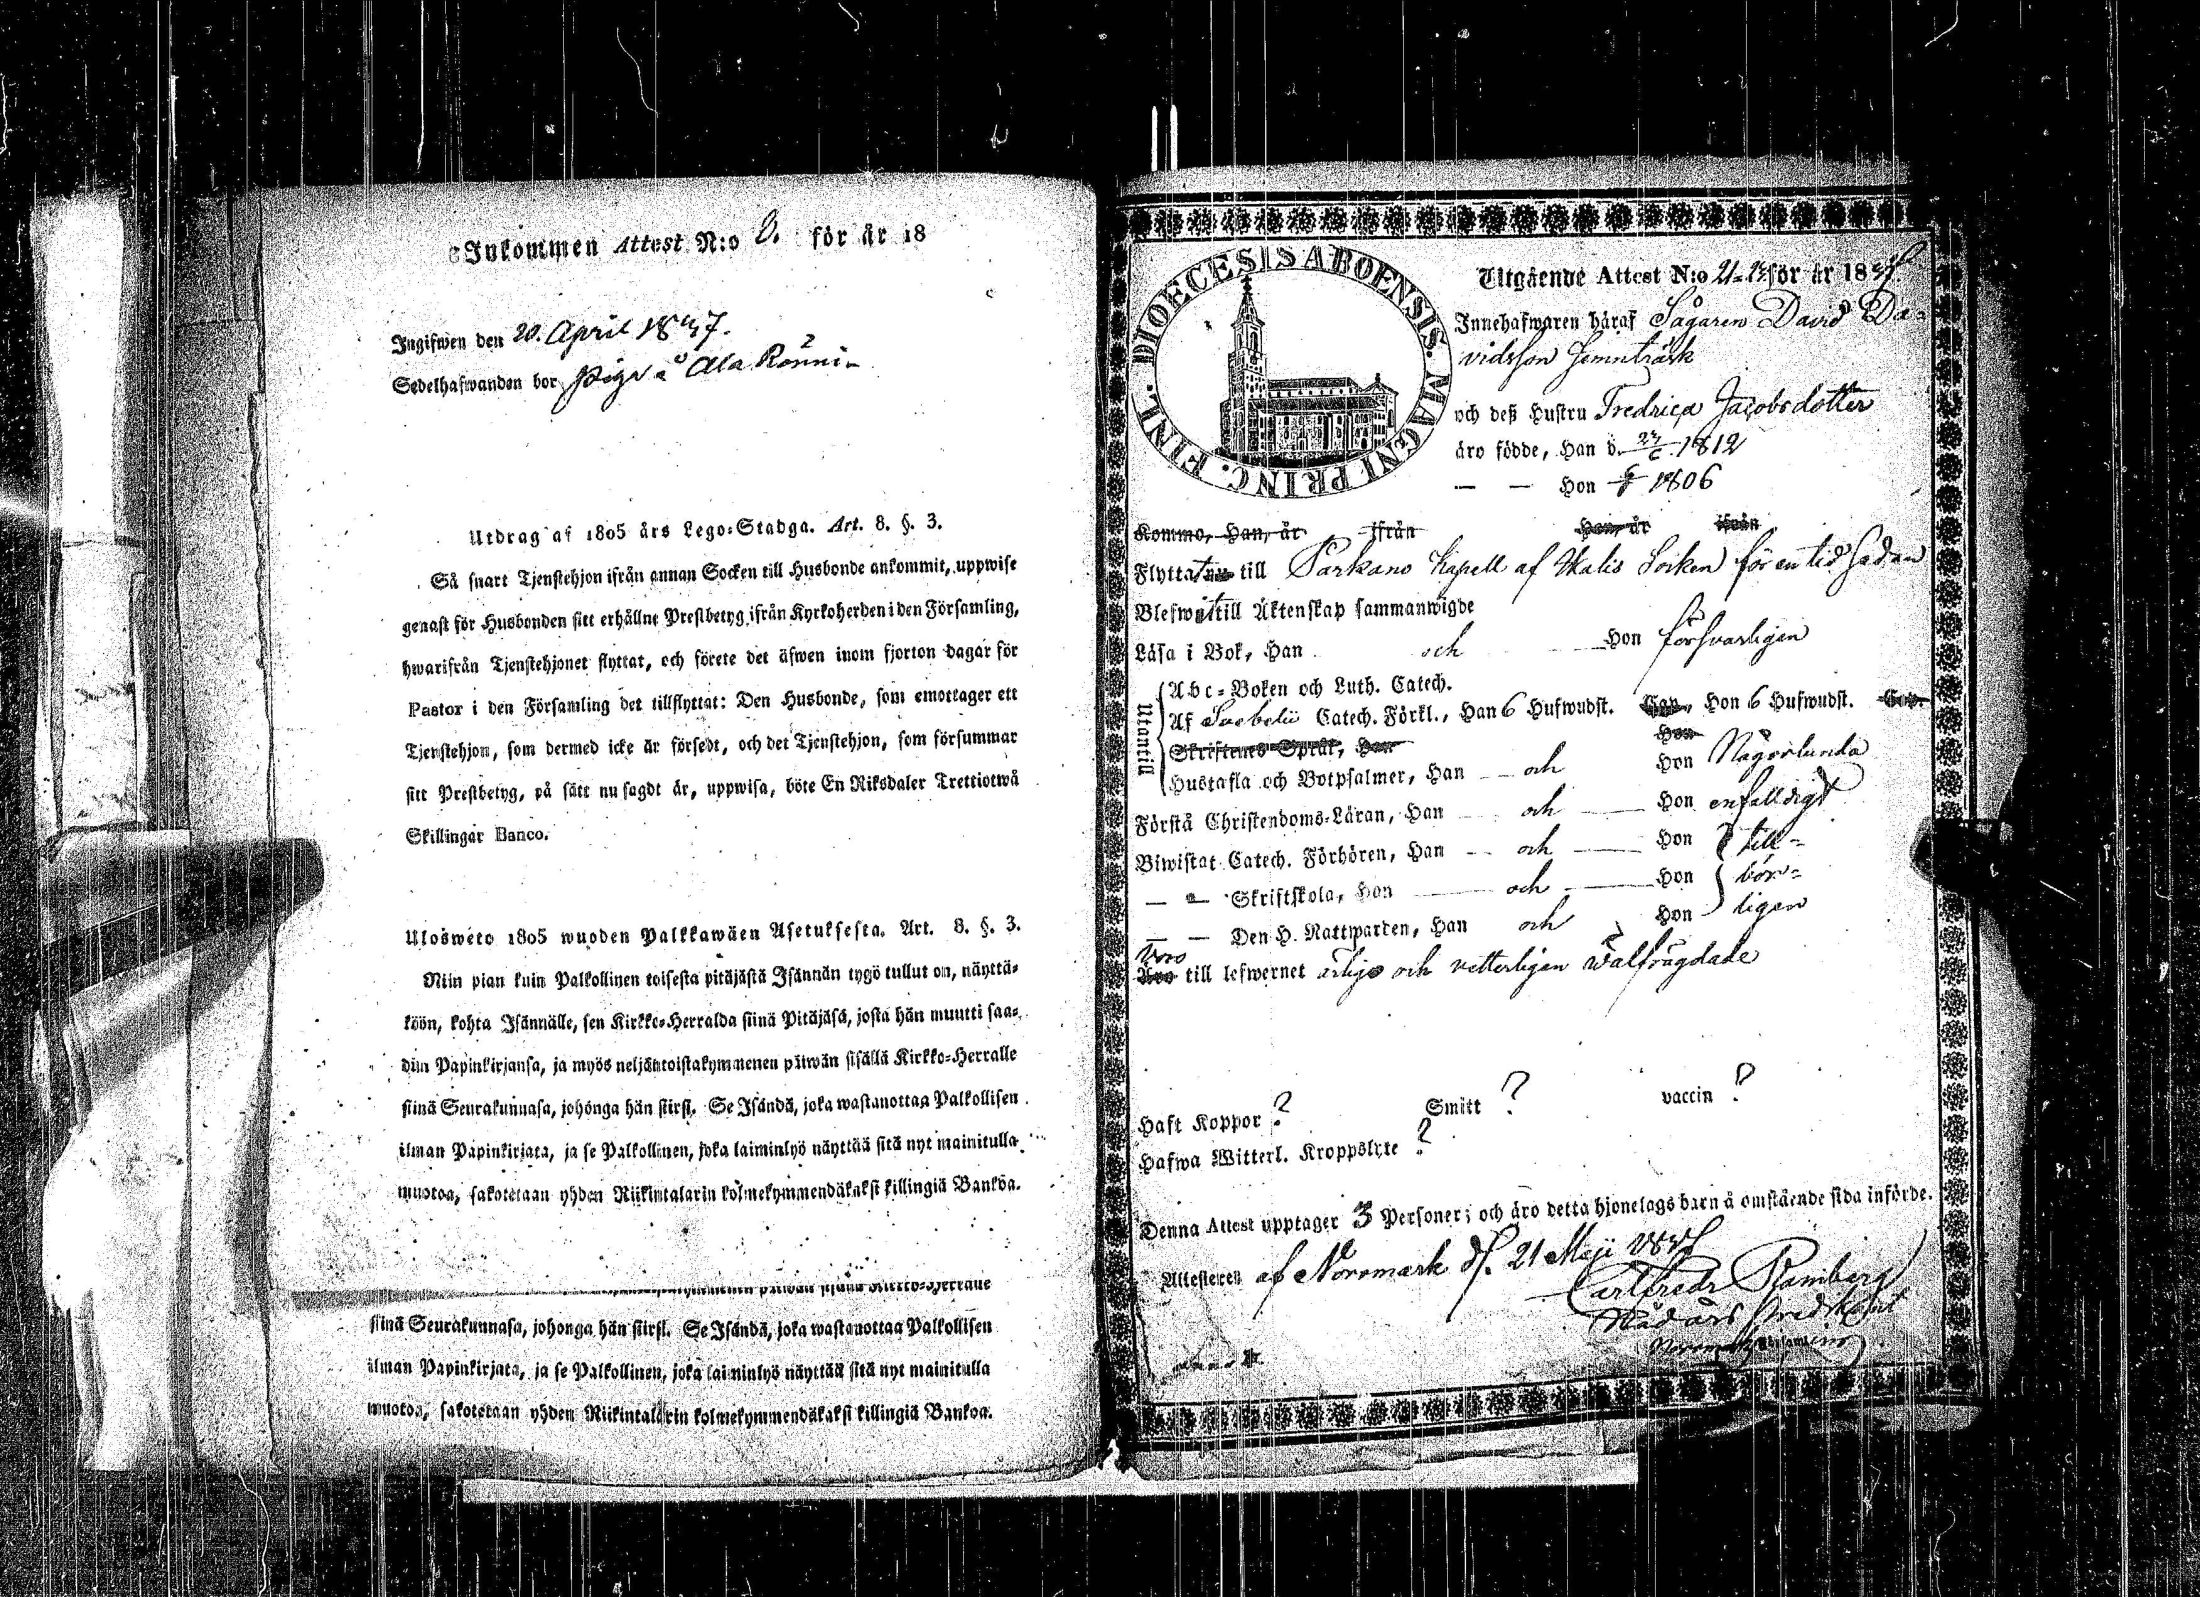 Inkommen Attest N:o 8. för år 18
Ingifwen den 20. April 1847.
Sedelhafwanden bor Piga å Ala Rönni
Utdrag af 1805 års Lego-Stadga. Art. 8. §. 3.
Så snart Tjenstehjon ifrån annan Socken till Husbonde ankommit, uppwise
genast för Husbonden sitt erhållne Prestbetyg ifrån Kyrkoherden i den Församling,
hwarifrån Tjenstehjonet flyttat, och förete det äfwen inom fjorton dagar för
Pastor i den Församling det tillflyttat: Den Husbonde, som emottager ett
Tjenstehjon, som dermed icke är försedt, och det Tjenstehjon, som försummar
sitt Prestbetyg, på sätt nu sagdt är, uppwisa, böte En Riksdaler Trettiotwå
Skillingar Banco.
Ulosweto 1805 wuoden Palkkawäen Asetuksesta. Art. 8. §. 3.
Niin pian kuin Palkollinen toisesta pitäjästä Isännän tygö tullut on, näyttä-
köön, kohta Isännälle, sen Kirkko-Herralda siinä Pitäjäsä, josta hän muutti saa-
dun Papinkirjansa, ja myös neljäntoistakymmenen päiwän sisällä Kirkko-Herralle
siinä Seurakunnasa, johonga hän siirsi. Se Isändä, joka wastanottaa Palkollisen
ilman Papinkirjata, ja se Palkollinen, joka laiminlyö näyttää sitä nyt mainitulla
muotoa, sakotetaan yhden Riikintalarin kolmekymmendäkaksi killingiä Bankoa.
siinä Seurakunnasa, johonga hän siirsi. Se Isändä, joka wastanottaa Palkollisen
ilman Papinkirjata, ja se Palkollinen, joka laiminlyö näyttää sitä nyt mainitulla
muotoa, sakotetaan yhden Riikintalarin kolmekymmendäkaksi killingiä Bankoa.
DIOECESIS ABOENSIS. MAGNI PRINC. FINL.
Utgående Attest N:o 21 för år 18
Innehafwaren häraf Sågaren David Da-
vidsson
och deß Hustru Fredrica Jacobsdotter
äro födde, Han d. 1812
— — Hon 1806
Kommo, Han, år ifrån Hon, år ifrån
Flytta till Parkano Kapell af Ikalis Socken för en tid sedan
Blefwit till Äktenskap sammanwigde
Läsa i Bok, Han och Hon försvarligen
Utantill
Abc-Boken och Luth. Catech.
Af Svebelii Catech. Förkl., Han 6 Hufwudst. Cap., Hon 6 Hufwudst. Cap.
Skriftenes Språk, Han Hon
Hustafla och Botpsalmer, Han och Hon Någorlunda
Förstå Christendoms-Läran, Han och Hon enfaldigt
Biwistat Catech. Förhören, Han och Hon till-
— — Skriftskola, Han och Hon bör-
— — Den H. Nattwarden, Han och Hon ligen
Äro till lefwernet ärliga och vetterligen wälfrägdade
Haft Koppor ? Smitt ? vaccin ?
Hafwa Witterl. Kroppslyte ?
Denna Attest upptager 3 Personer; och äro detta hjonelags barn å omstående sida införde.
Attesteren af Norrmark d. 21 Maji